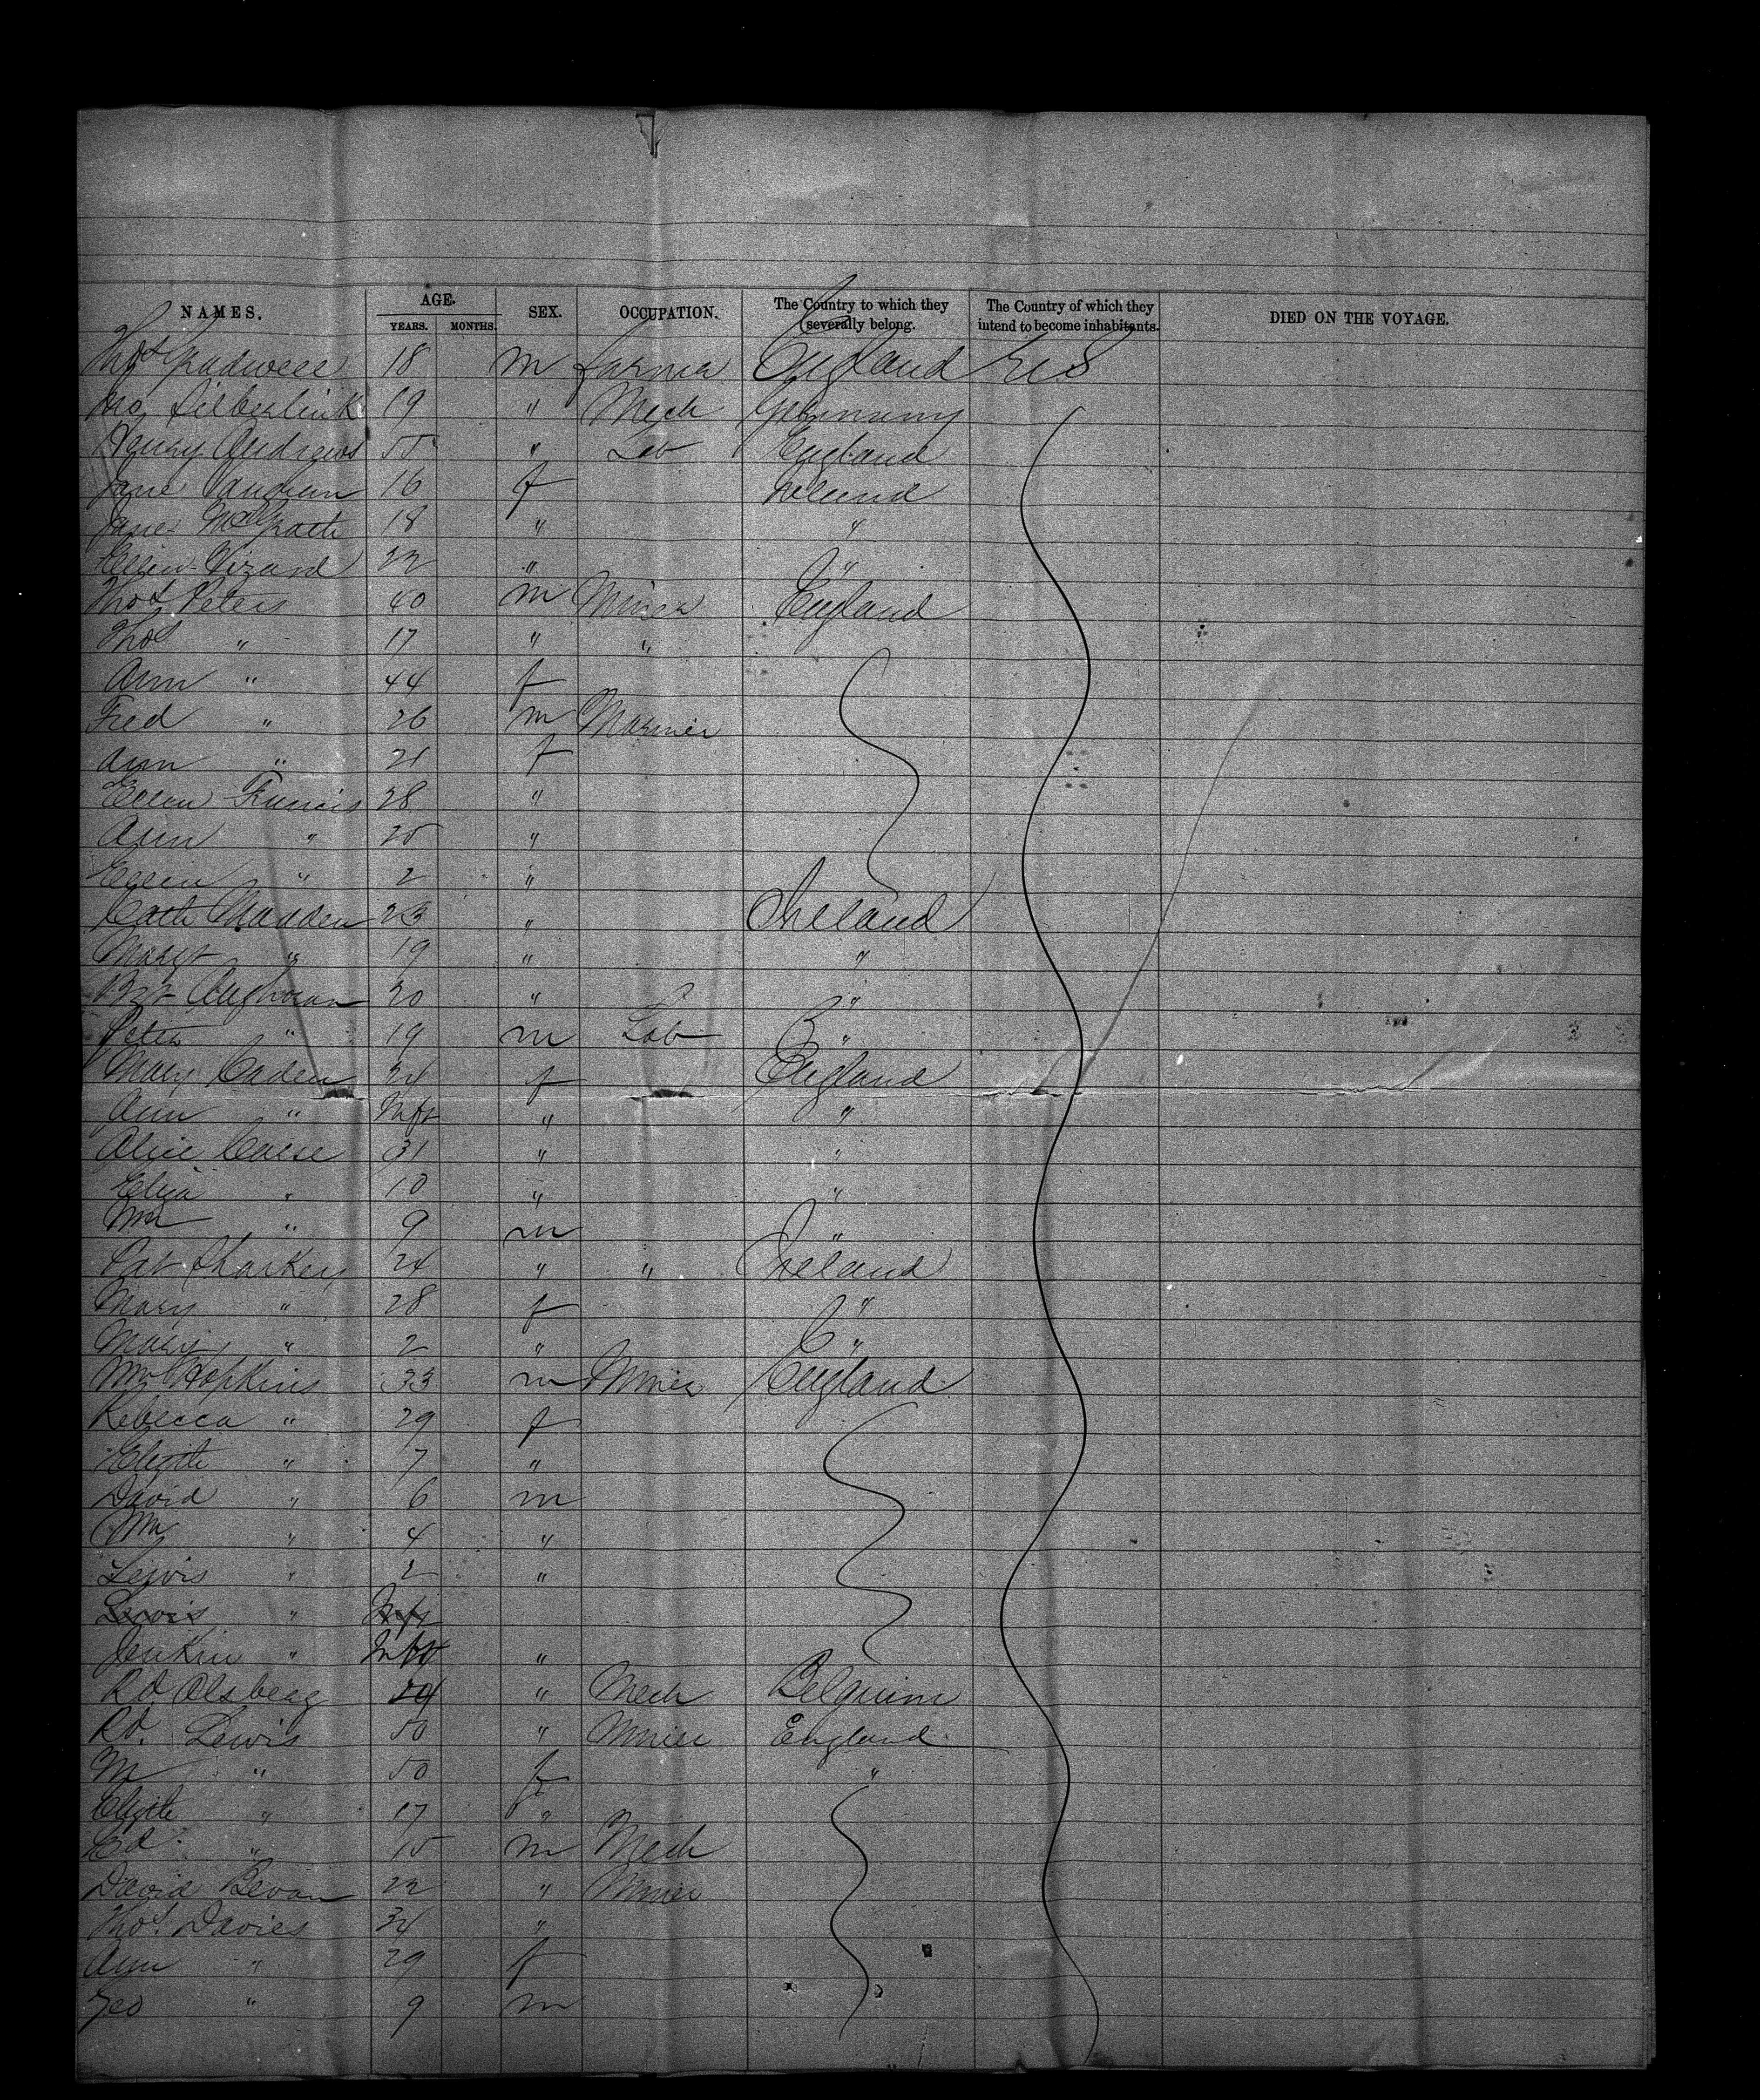 NAMES. AGE. YEARS. MONTHS. SEX. OCCUPATION. The Country to which they severally belong. The Country of which they intend to become inhabitants. DIED ON THE VOYAGE.
Thos Gradwell 18 m Farmer England U S
Jno Silberlink 19 " Mech Germany
Henry Andrews 55 " Lab England
Jane Vaughan 16 f Ireland
Jane McGrath 18 " "
Ellen Vizard 22 " "
Thos Peters 40 m Miner England
Thos " 17 " "
Ann " 44 f
Fred " 26 m Mariner
Ann " 21 f
Ellen Francis 28 "
Ann " 25 "
Ellen " 2 "
Cath Madden 23 " Ireland
Margt " 19 " "
Bgt 20 " "
Peter " 19 m Lab "
Mary Caden 24 f England
Ann " Inft " "
Alice 31 " "
Eliza " 10 " "
Wm " 9 m "
Pat Sharkey 24 " " Ireland
Mary " 28 f "
Mary " 2 " "
Wm Hopkins 33 m Miner England
Rebecca " 29 f
Elizth " 7 "
David " 6 m
Wm " 4 "
Lewis " 2 "
Lewis " Inft
Jenkin " Inft "
Rd. Alsberg " Mech Belgium
Rd. Lewis 50 " Miner England
M " 50 f "
Elizth " 17 "
Ed. " 15 m Mech
David Bevan 22 " Miner
Thos. Davies 34 "
Ann " 29 f
Geo " 9 m